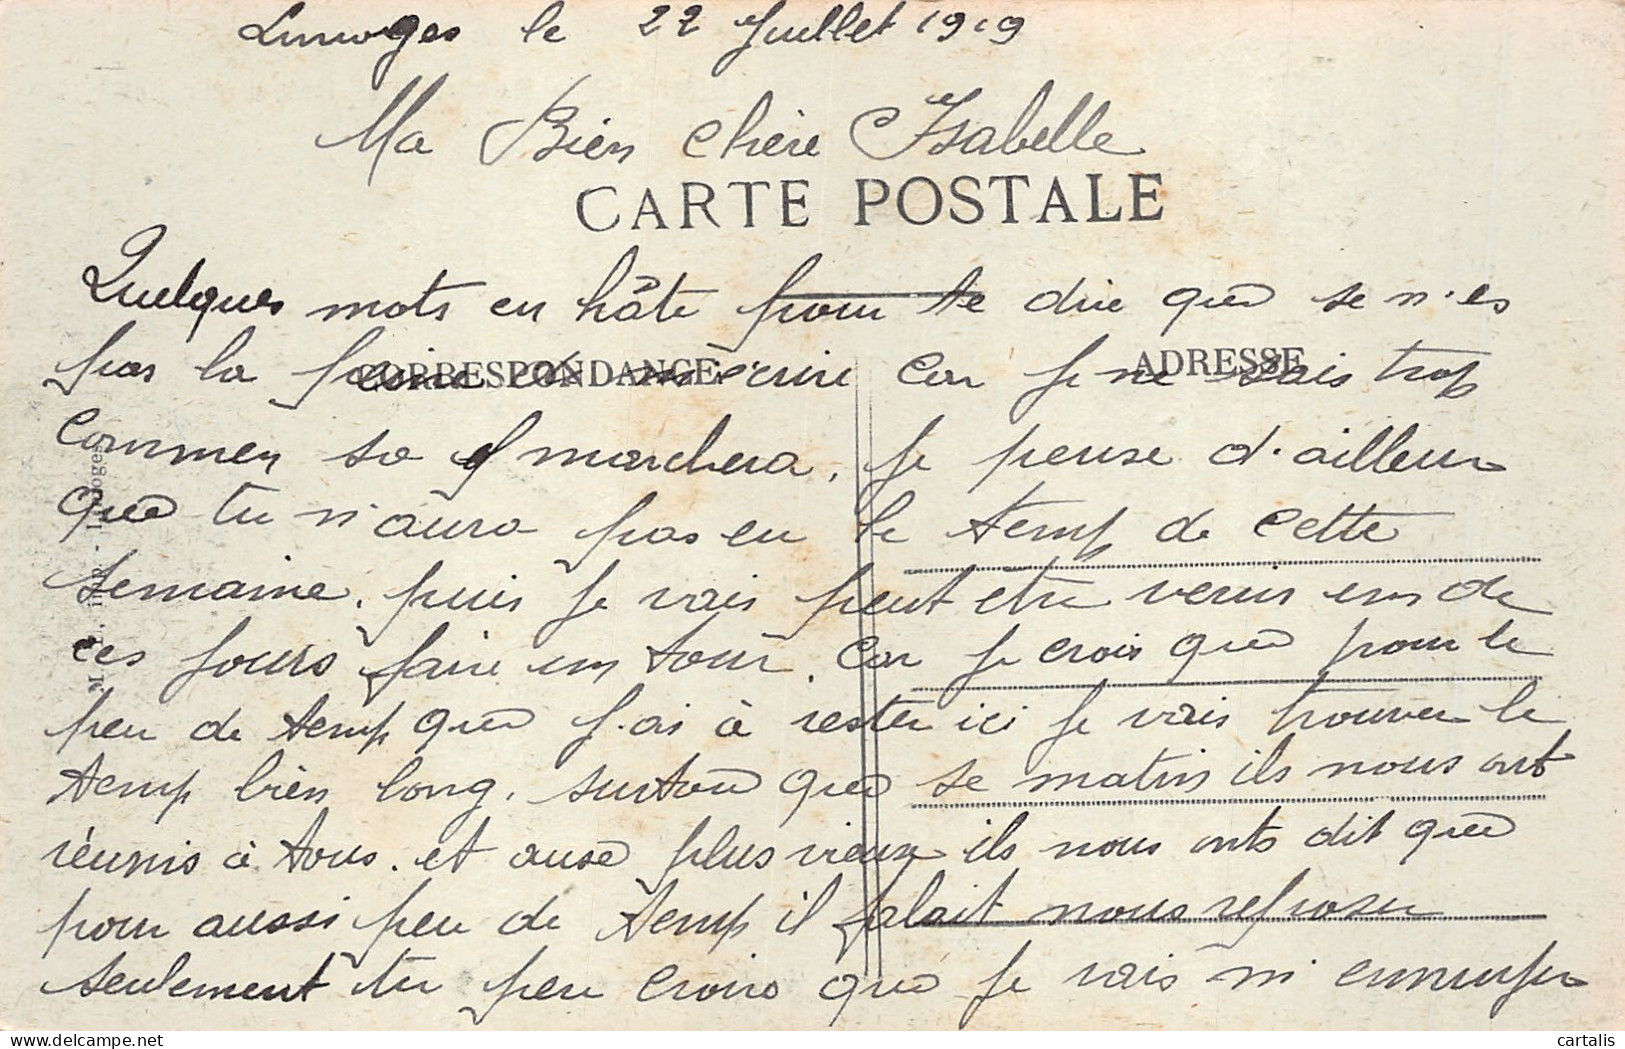 Limoges le 22 Juillet 1919
Ma Bien chère Isabelle
CARTE POSTALE
Quelques mots en hâte pour te dire que se n'es
pas la peine es m'écrire car je ne sais trop
CORRESPONDANCE
ADRESSE
commen sa marchera, je pense d'ailleur
que tu n'aura pas eu le temp de cette
semaine, puis je vais peut etre venir un de
ces jours faire un tour, car je crois que pour le
peu de temp que j'ai à rester ici je vais trouver le
temp bien long, surtou que se matin ils nous ont
réunis à tous. et ause plus vieux ils nous onts dit que
pour aussi peu de temp il falait nous reposer
seulement tu peu croire que je vais m'ennuyer
M. T. imp. Limoges
cartalis
delcampe.net